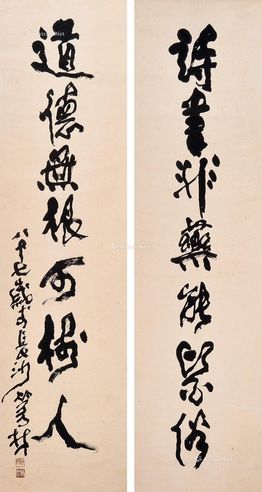 詩書非藥能醫俗
道德無根可樹人
八十七歲長沙